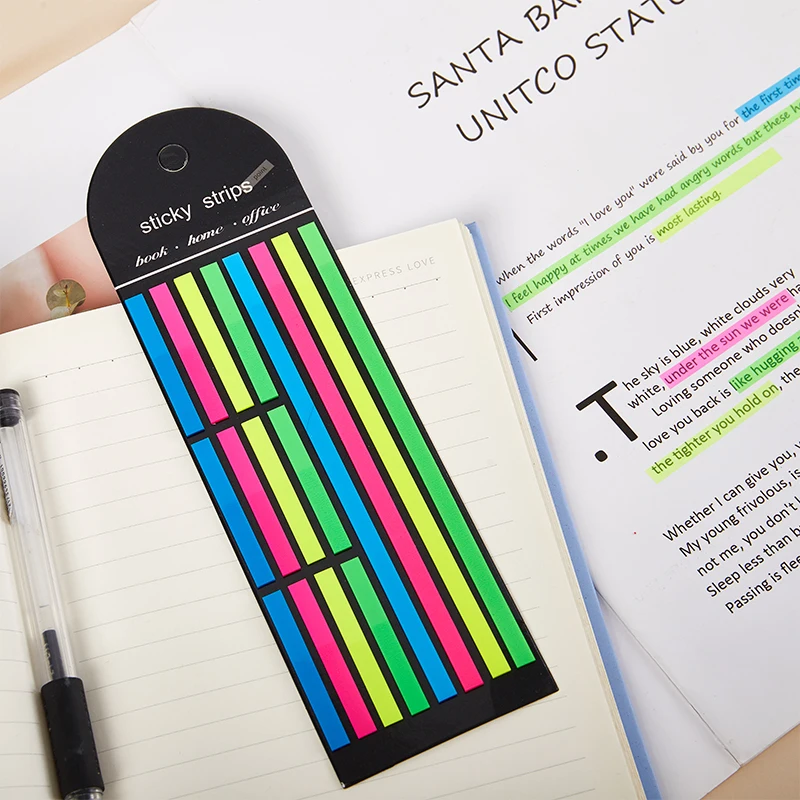 SANTA BA
UNITCO STATU
sticky strips
point
book · home · office
EXPRESS LOVE
when the words "I love you" were said by you for the first tim
I feel happy at times we have had angry words but these h
First impression of you is most lasting.
.The sky is blue, white clouds very
white, under the sun we were ha
Loving someone who doesn
love you back is like hugging
the tighter you hold on, the
Whether I can give you,
My young frivolous, is
not me, you don't l
Sleep less than b
Passing is flee